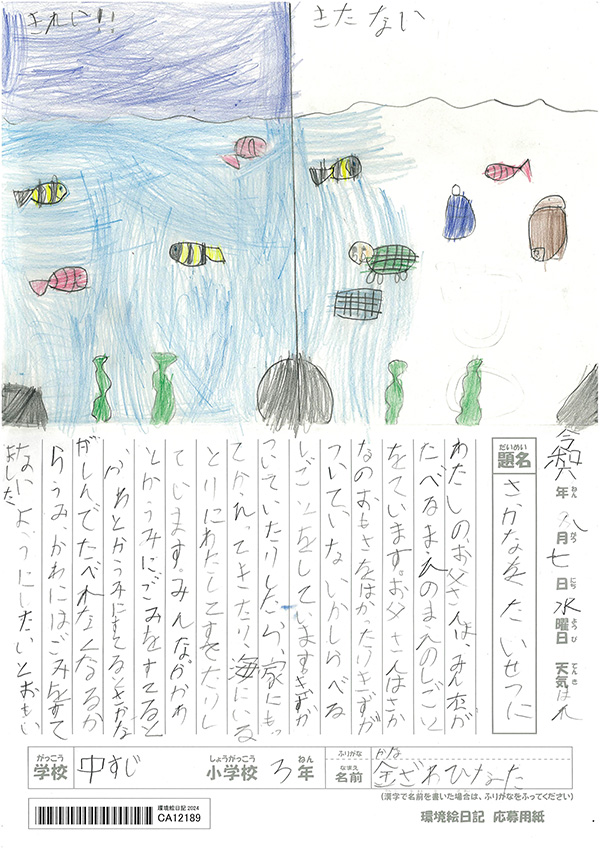 きれい!!
きたない
令和六年八月七日水曜日 天気はれ
だいめい
題名
さかなをたいせつに
わたしの、お父さんは、みんなが
たべるまえのまえのしごと
をています。お父さんはさか
なのおもさをはかったりきずが
ついていないかしらべる
しごとをしています。きずが
ついていたりしたら、家にもっ
てかえってきたり、海にいる
とりにわたしてすてたりし
ています。みんな。がかわ
とかうみにごみをすてると
かわとかうみにすてるとさかな
がしんでたべれなくなるか
らうみ、かわにはごみをすて
ないようにしたいとおもい
ました。
がっこう
学校
中すじ
しょうがっこう
小学校
3
ねん
年
ふりがな
かな
なまえ
名前
金ざわひなた
(漢字で名前を書いた場合は、ふりがなをふってください)
環境絵日記 2024
CA12189
環境絵日記 応募用紙